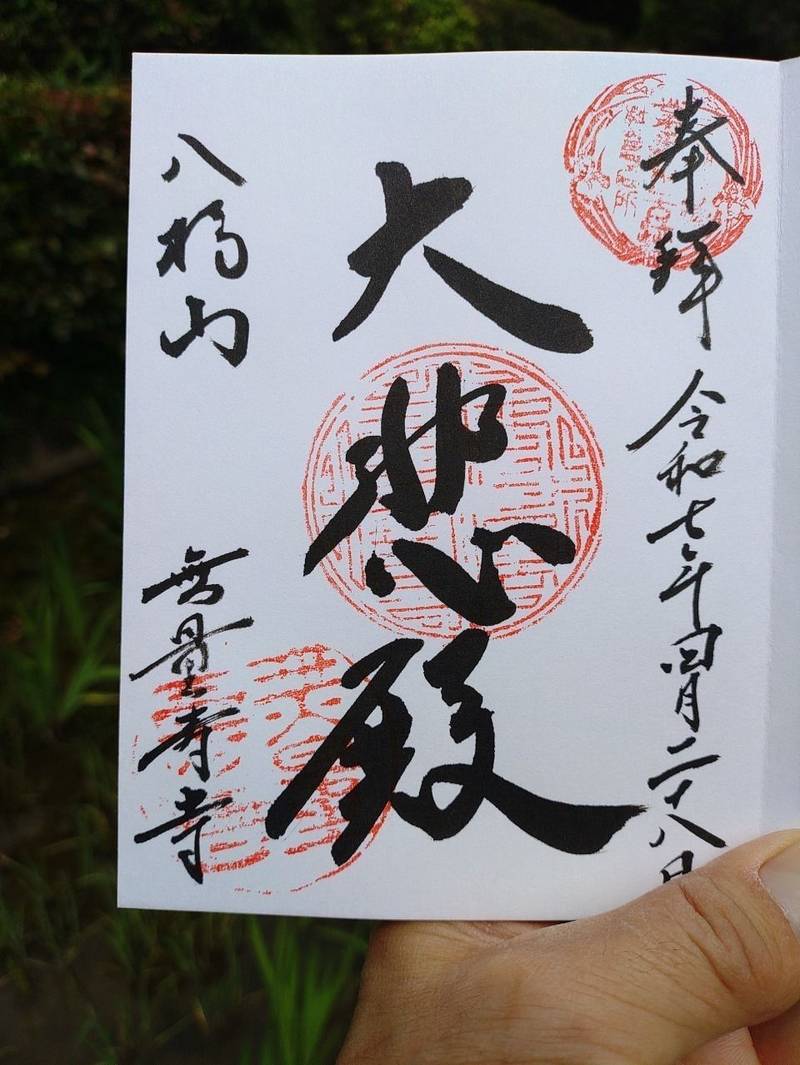 奉拝
令和七年四月二十八日
大悲殿
八橋山
無量寿寺